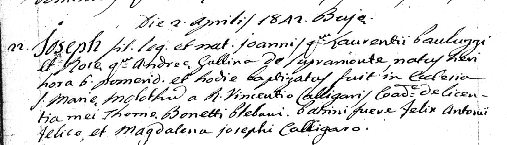 Die 2. Aprilis 1842. Buja.
22. Joseph fil. leg. et nat. Joannis qm. Laurentii Bauluzzi
et Rose qm. Andree Gallina de Supramonte natus heri
hora 6. pomerid. et hodie baptizatus fuit in Ecclesia
S. Marie a R. Vincentio Calligaris Coad.e de licen-
tia mei Thome Bonetti Plebani. Patrini fuere Felix Antonii
Felice, et Magdalena Josephi Calligaro.